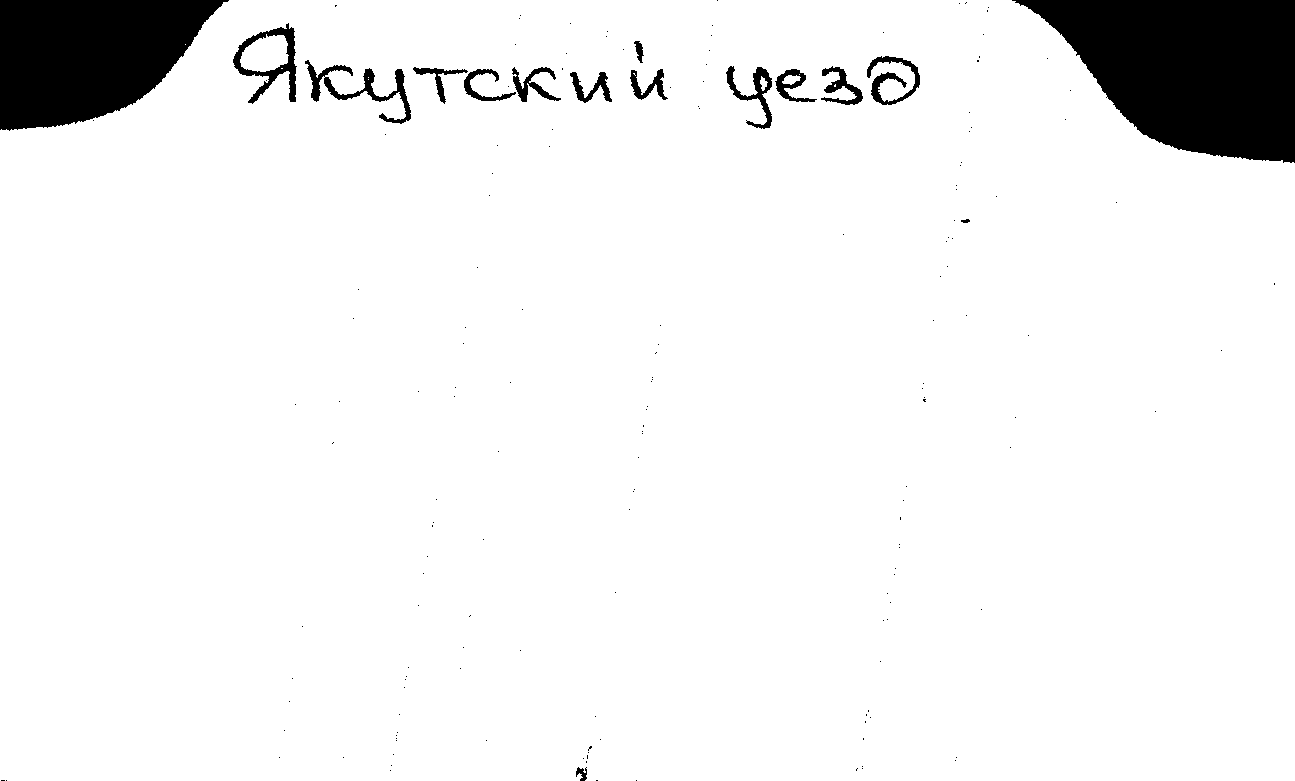 Якутский уезд